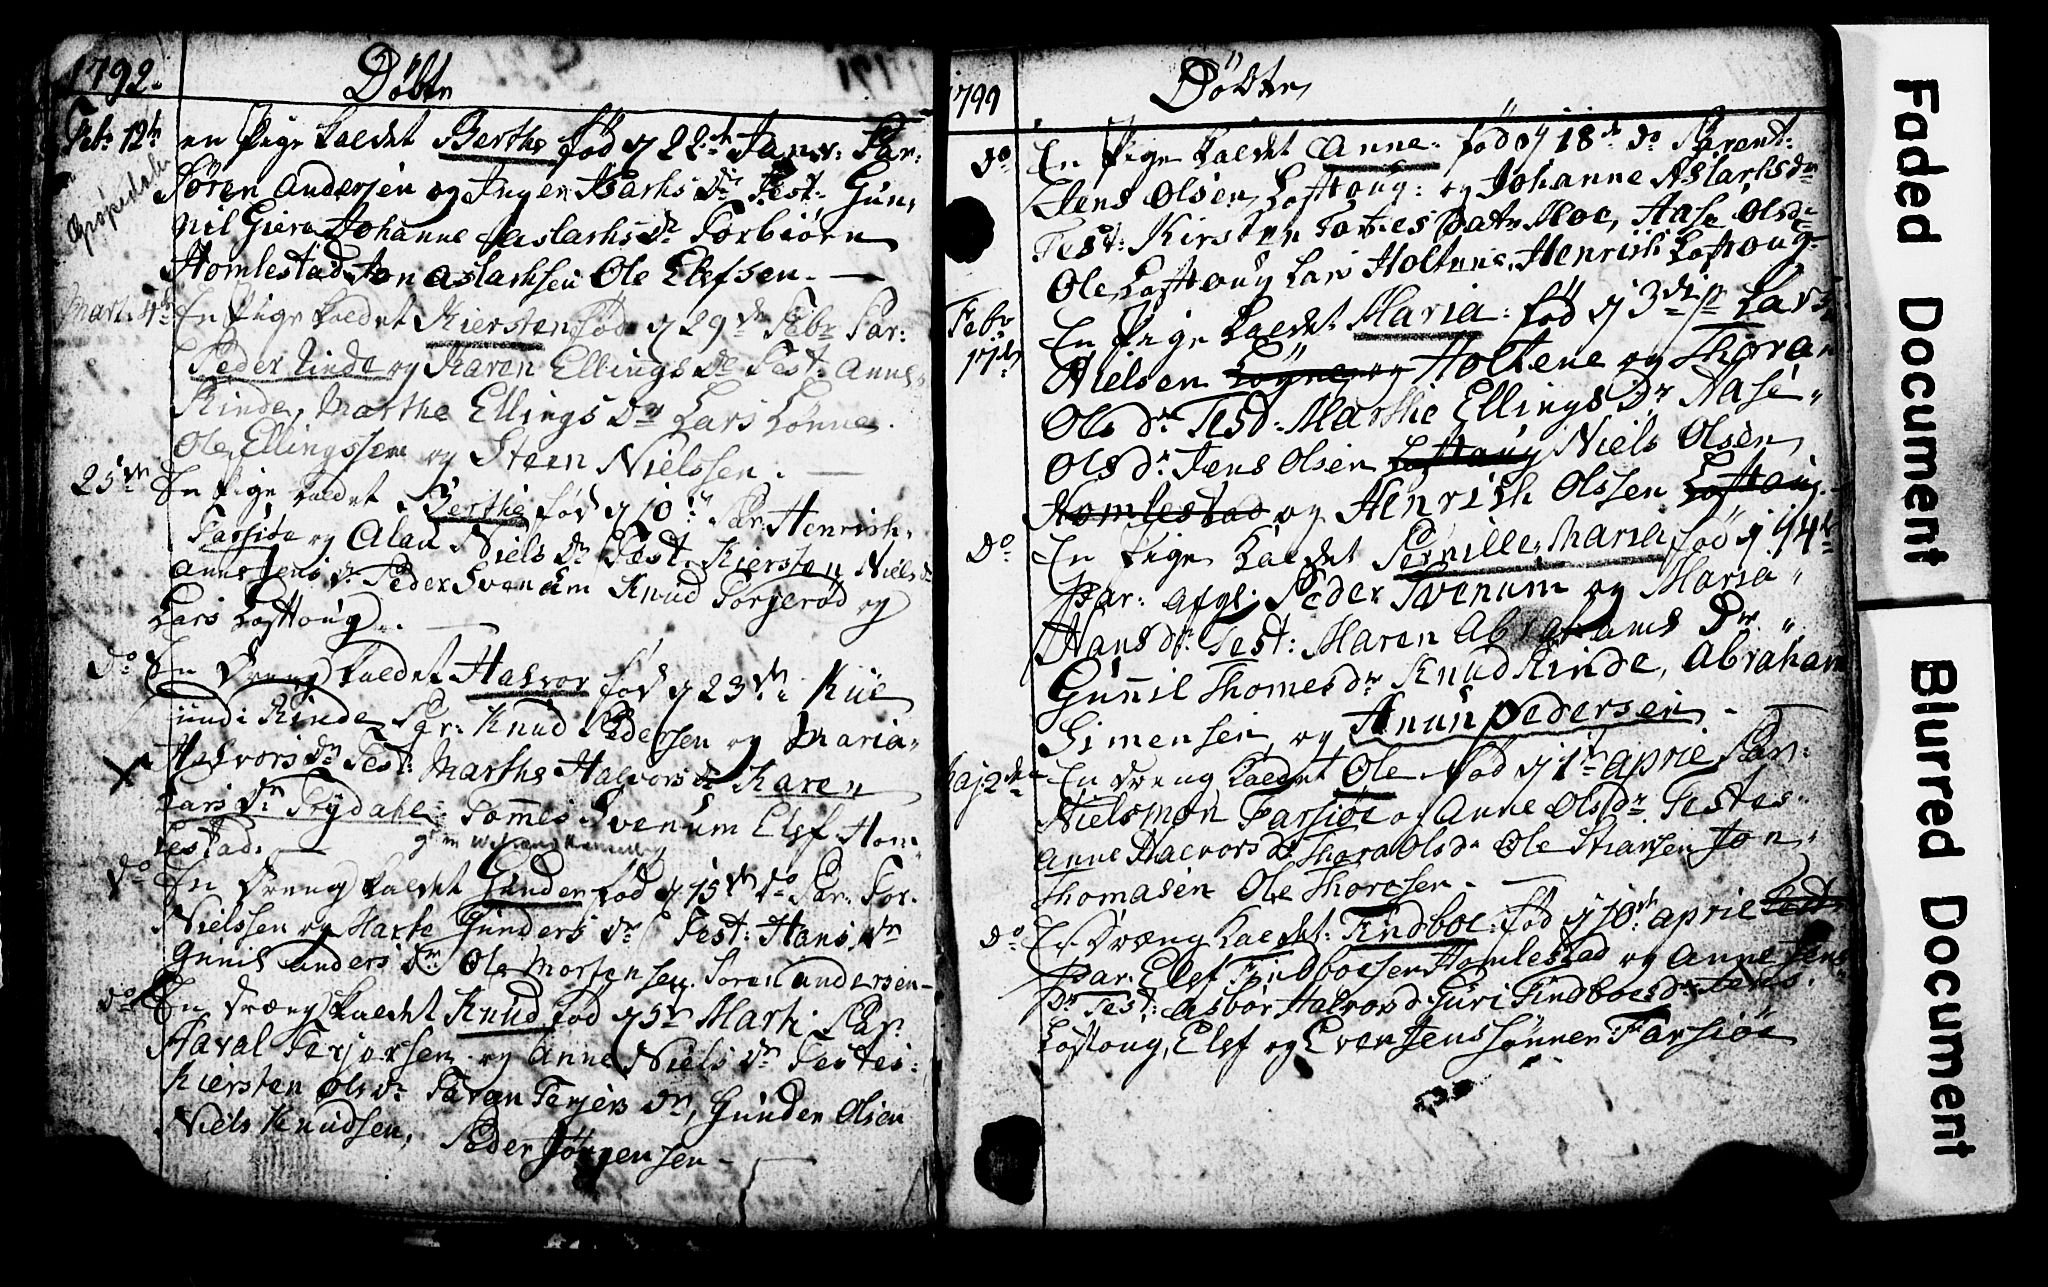 1792.
Döbte
Febr 12te en Pige kaldet Berthe fød d 22de Janv: Par:
Søren Andersen og Inger Isachs Dr Test: Gun,
nil Giera Johanne Aslachs Dr Torbiørn
Homlestad Jon Aslachsen Ole Elefsen. —
Mart: 4de En Pige kaldet Kiersten fød d 29de Febr Par:
Peder Rinde og Karen Ellings Dr Test: Anne
Rinde, Marthe Ellings Dr Lars Lønne.
Ole Ellingssen og Steen Nielssen. —
25de En Pige kaldet Berthe fød d 10de Par: Henrich
Farsiöe og Alau Niels Dr Test: Kiersten Niels Dr
Anne Jens Dr Peder Svenum Knud Torjerød og
Lars Løftoug. —
Do En Dreng kaldet Halvor fød d 23de i Kiil
und: Rinde Par: Knud Pedersen og Maria
Halvors Dr Test: Marthe Halvors Dr Karen
Lars Dr Frydahl: Tommes Svenum Elef Hom,
lestad. —
Do En Dreng kaldet Gunder fød d 15de Do Par: Tor.
Nielssen og Marte Gunders Dr Test: Hans Dr
Gunil Anders Dr Ole Mortensen. Soren Andersen —
Do En Dreng kaldet Knud fød d 5te Marti Par:
Taral Terjersen og Anne Niels Dr Testes:
Kiersten Ols Dr Taran Terjers Dr, Gunder Olsen
Niels Knudsen, Peder Jörgensen —
1799
Döbte
Do En Pige kaldet Anne fød d 18de Do Parent:
Jens Olsen Løftoug: og Johanne Aslachsdr
Test: Kirsten Datr Moe, Aase Olsdr
Ole Løftoug Lars Holtene, Henrich Løftoug
Febr 17de En Pige kaldet Maria: fød d 3de p Lars
Nielsen Løgne og Holtene og Thoran
Ols dr Test: Marthe Ellings Dr Aase
Ols dr Jens Olsen Løftoug Niels Olsen
Homlestad og Henrich Olssen Løftoug.
Do En Pige kaldet Pernille Maria fød d 14de
Par: afgl: Peder Svenum og Maria
Hans dr Test: Maren Abrahams Dr.
Gunnil Thomes dr Knud Rinde, Abraham
Simensen og Anun Pedersen —
Maj: 2de En Dreng kaldet Ole fød d 1te April Par:
Nielsmøn Farsiöe og Anne Olsdr. Testes
Anne Halvors Dr Thora Olsdr Ole Stiansen Jon
Thomasen Ole Thoresen. —
Do En Dreng kaldet: Findboe: fød d 10de April Test
Par: Elef Findboesen Homlestad og Anne Jens
Dr Test: Asbor Halvorsd Guri Findboesdr Jens
Løftoug, Elef og Even Jenssønner Farsiöe
Faded Document
Blurred Document